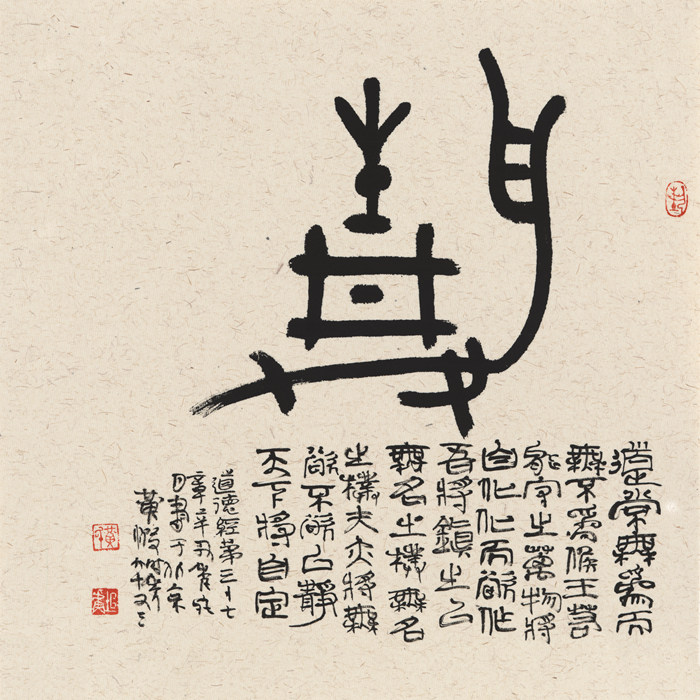 靜
道常無為而
無不為侯王若
能守之萬物將
自化化而欲作
吾將鎮之以
無名之樸無名
之樸夫亦將無
欲不欲以靜
天下將自定
道德經第三十七
章辛丑歲
日書于北京
黄